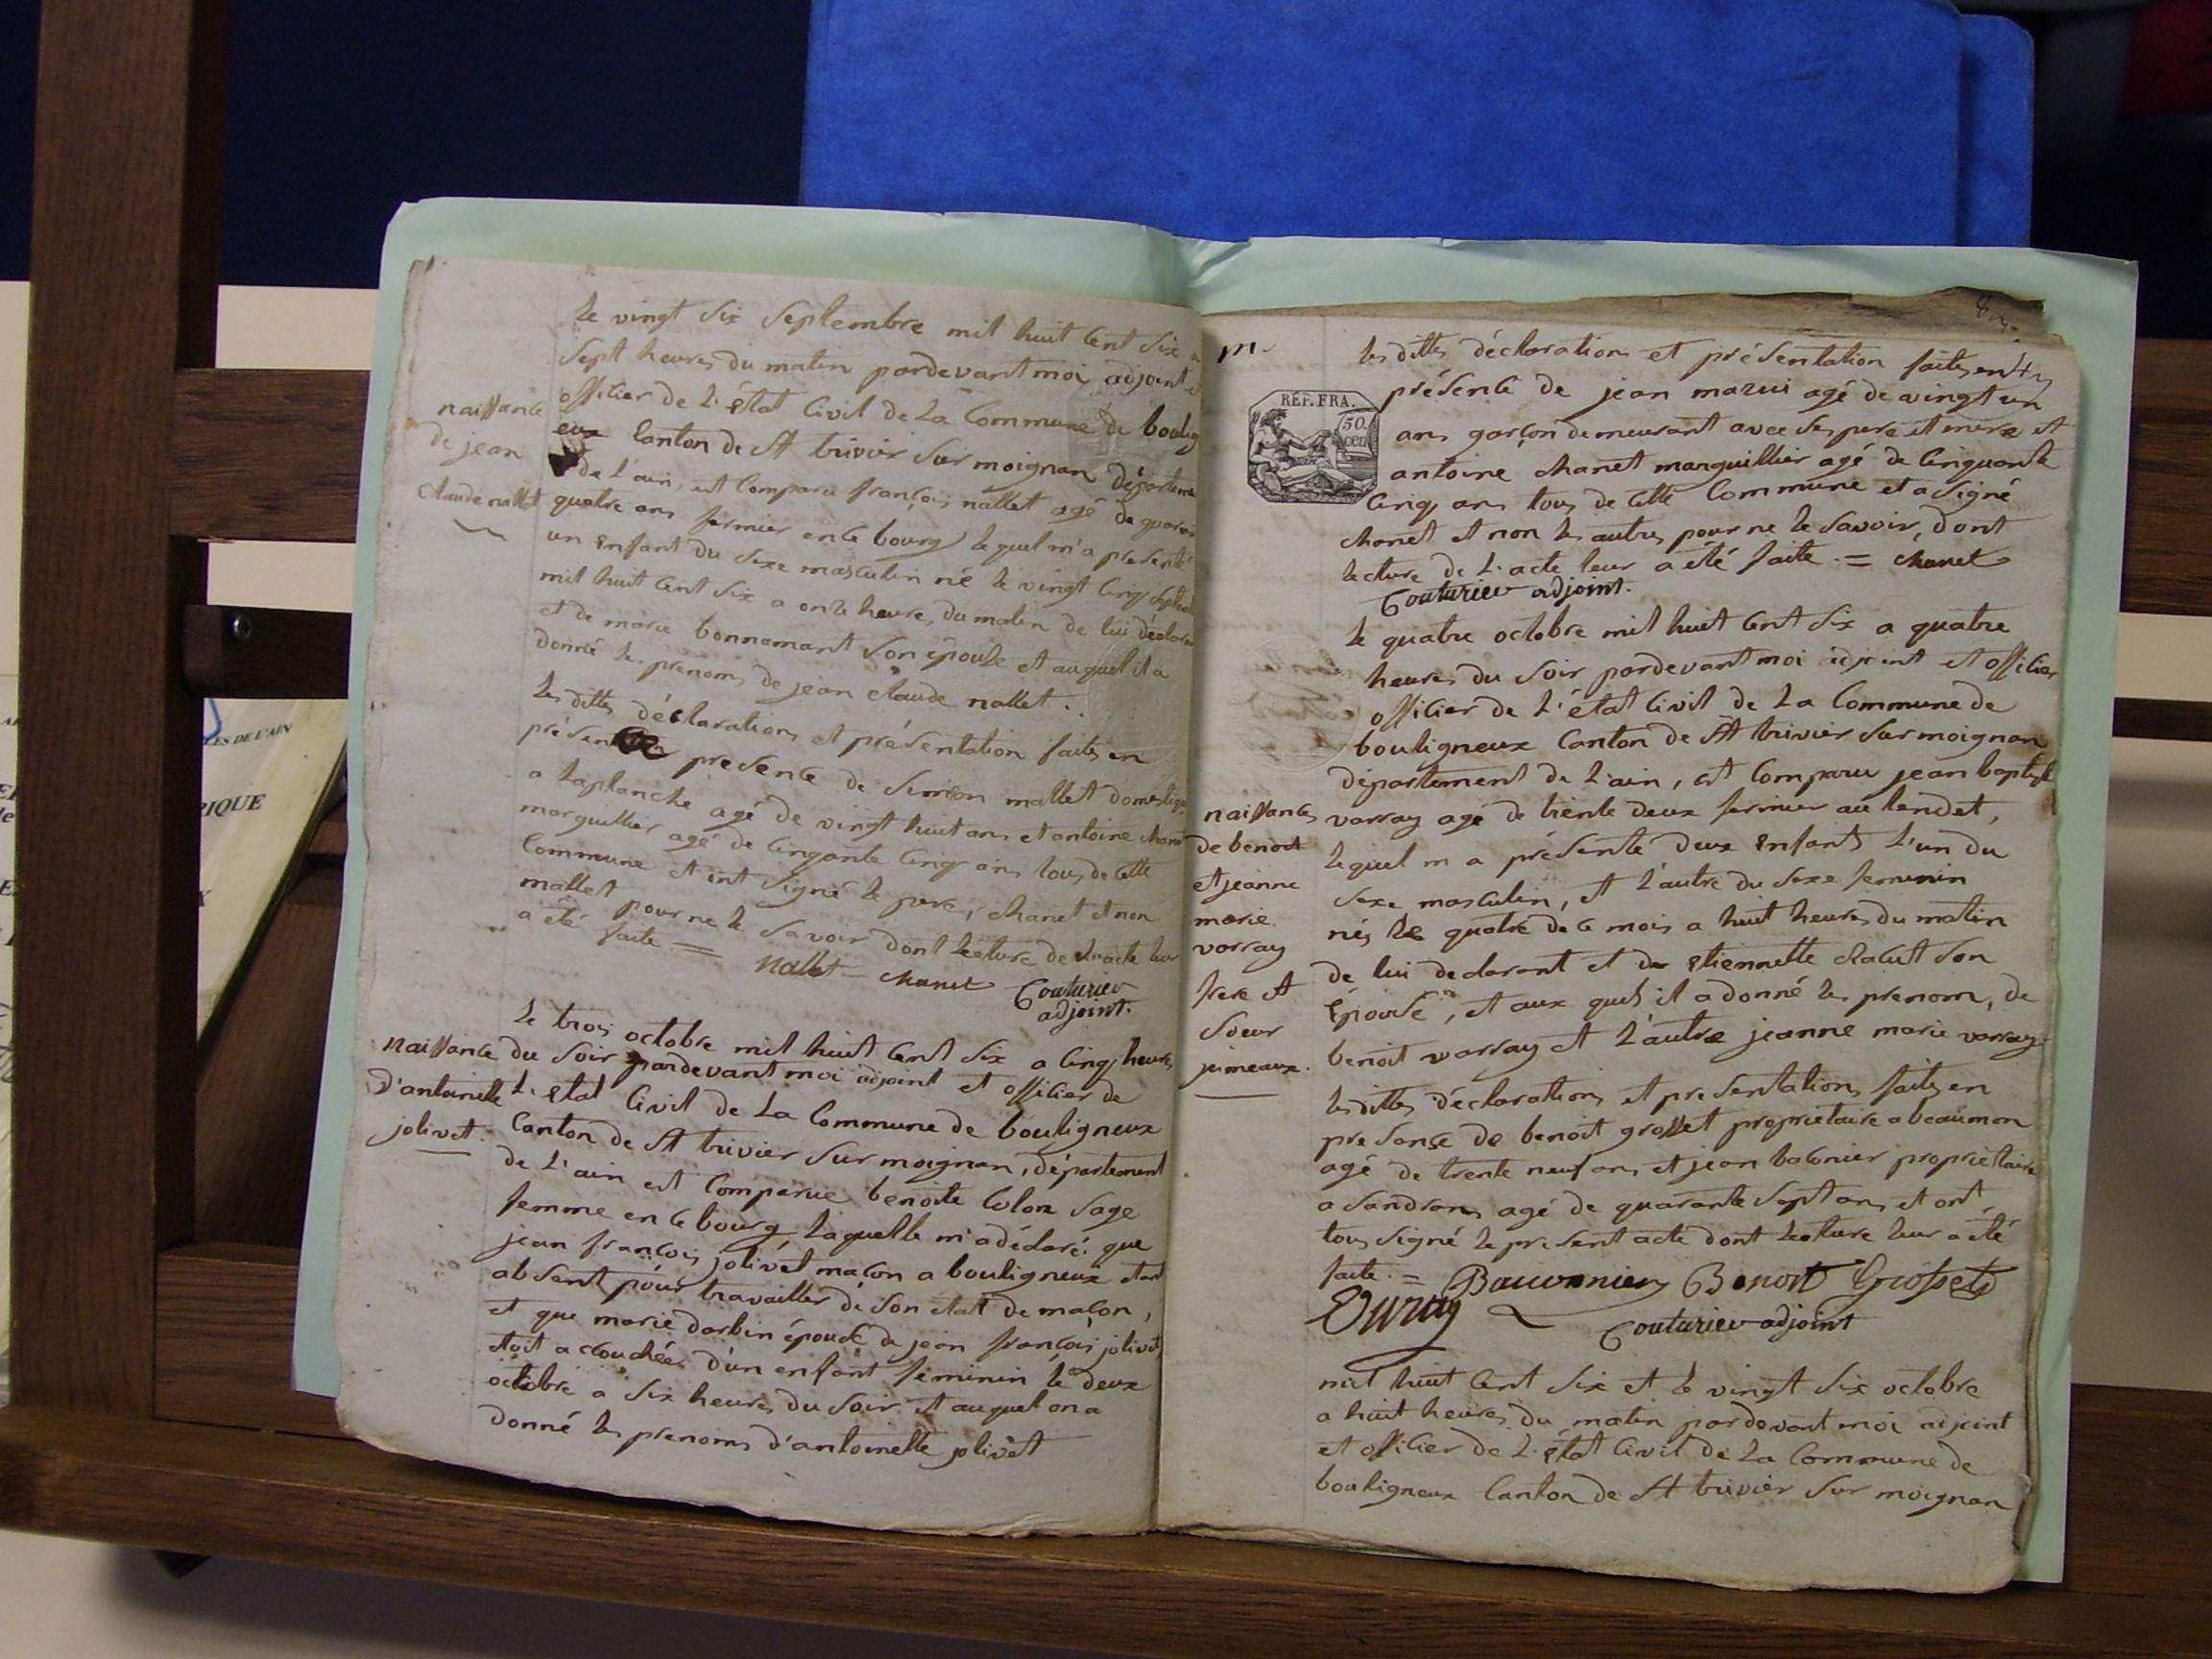 Le vingt six septembre mil huit cent six a
sept heures du matin pardevant moi adjoint et
officier de l'état civil de la commune de boulig
eux canton de St trivier sur moignan départeme
de l'ain, est comparu françois nallet agé de quaran
quatre ans fermier en ce bourg lequel m'a presenté
un enfant du sexe masculin né le vingt cinq septem
mil huit cent six a onze heures du matin de lui déclara
et de marie bonnamant son épouse et auquel il a
donné les prenoms de jean claude nallet.
naissance
de jean
claude nallet
les dittes déclaration et présentation faites en
présen presence de simeon mallet domestique
a laplanche agé de vingt huit ans et antoine chanet
marguillier agé de cinqante cinq ans tous de cette
commune et ont signé le pere, chanet et non
mallet pour ne le savoir dont lecture de l'acte leur
a été faite = Nallet chanet Couturier
adjoint.
Le trois octobre mil huit cent six a cinq heures
du soir pardevant moi adjoint et officier de
l'etat civil de la commune de bouligneux
canton de St trivier sur moignan, département
de l'ain est comparue benoite colon sage
femme en ce bourg, laquelle m'a déclaré que
jean françois jolivet maçon a bouligneux etant
absent pour travailler de son etat de maçon,
et que marie darbin épouse de jean françois jolivet
etoit accouchée d'un enfant feminin le deux
octobre a six heures du soir et auquel on a
donné les prenoms d'antoinette jolivet
naissance
d'antoinette
jolivet.
m.
REP. FRA.
50.
cen
les dittes déclaration et présentation faites en
présence de jean mazui agé de vingt un
ans garçon demeurant avec ses pere et mere et
antoine chanet marguillier agé de cinquante
cinq ans tous de cette commune et a signé
chanet et non les autres pour ne le savoir, dont
lecture de l'acte leur a été faite. = chanet
Couturier adjoint.
le quatre octobre mil huit cent six a quatre
heures du soir pardevant moi adjoint et officier
officier de l'état civil de la commune de
bouligneux canton de St trivier sur moignan
département de l'ain, est comparu jean baptiste
varray agé de trente deux fermier au tendet,
lequel m'a présenté deux enfants l'un du
sexe masculin, et l'autre du sexe feminin
nés le quatre de ce mois a huit heures du matin
de lui declarant et de etiennette chacut son
épouse, et aux quels il a donné les prenoms, de
benoit varray et l'autre jeanne marie varray
naissances
de benoit
et jeanne
marie
varray
frere et
soeur
jumeaux.
les dittes déclarations et presentation faites en
presance de benoit grosset propriétaire a beaumon
agé de trente neuf ans et jean baconier propriétaire
a sandrans agé de quarante sept ans et ont
tous signé le present acte dont lecture leur a été
faite. = Bauconnier Benoit Grosset
Couturier adjoint
mil huit cent six et le vingt six octobre
a huit heures du matin pardevant moi adjoint
et officier de l'état civil de la commune de
bouligneux canton de St trivier sur moignan
LES DE L'AIN
RIQUE